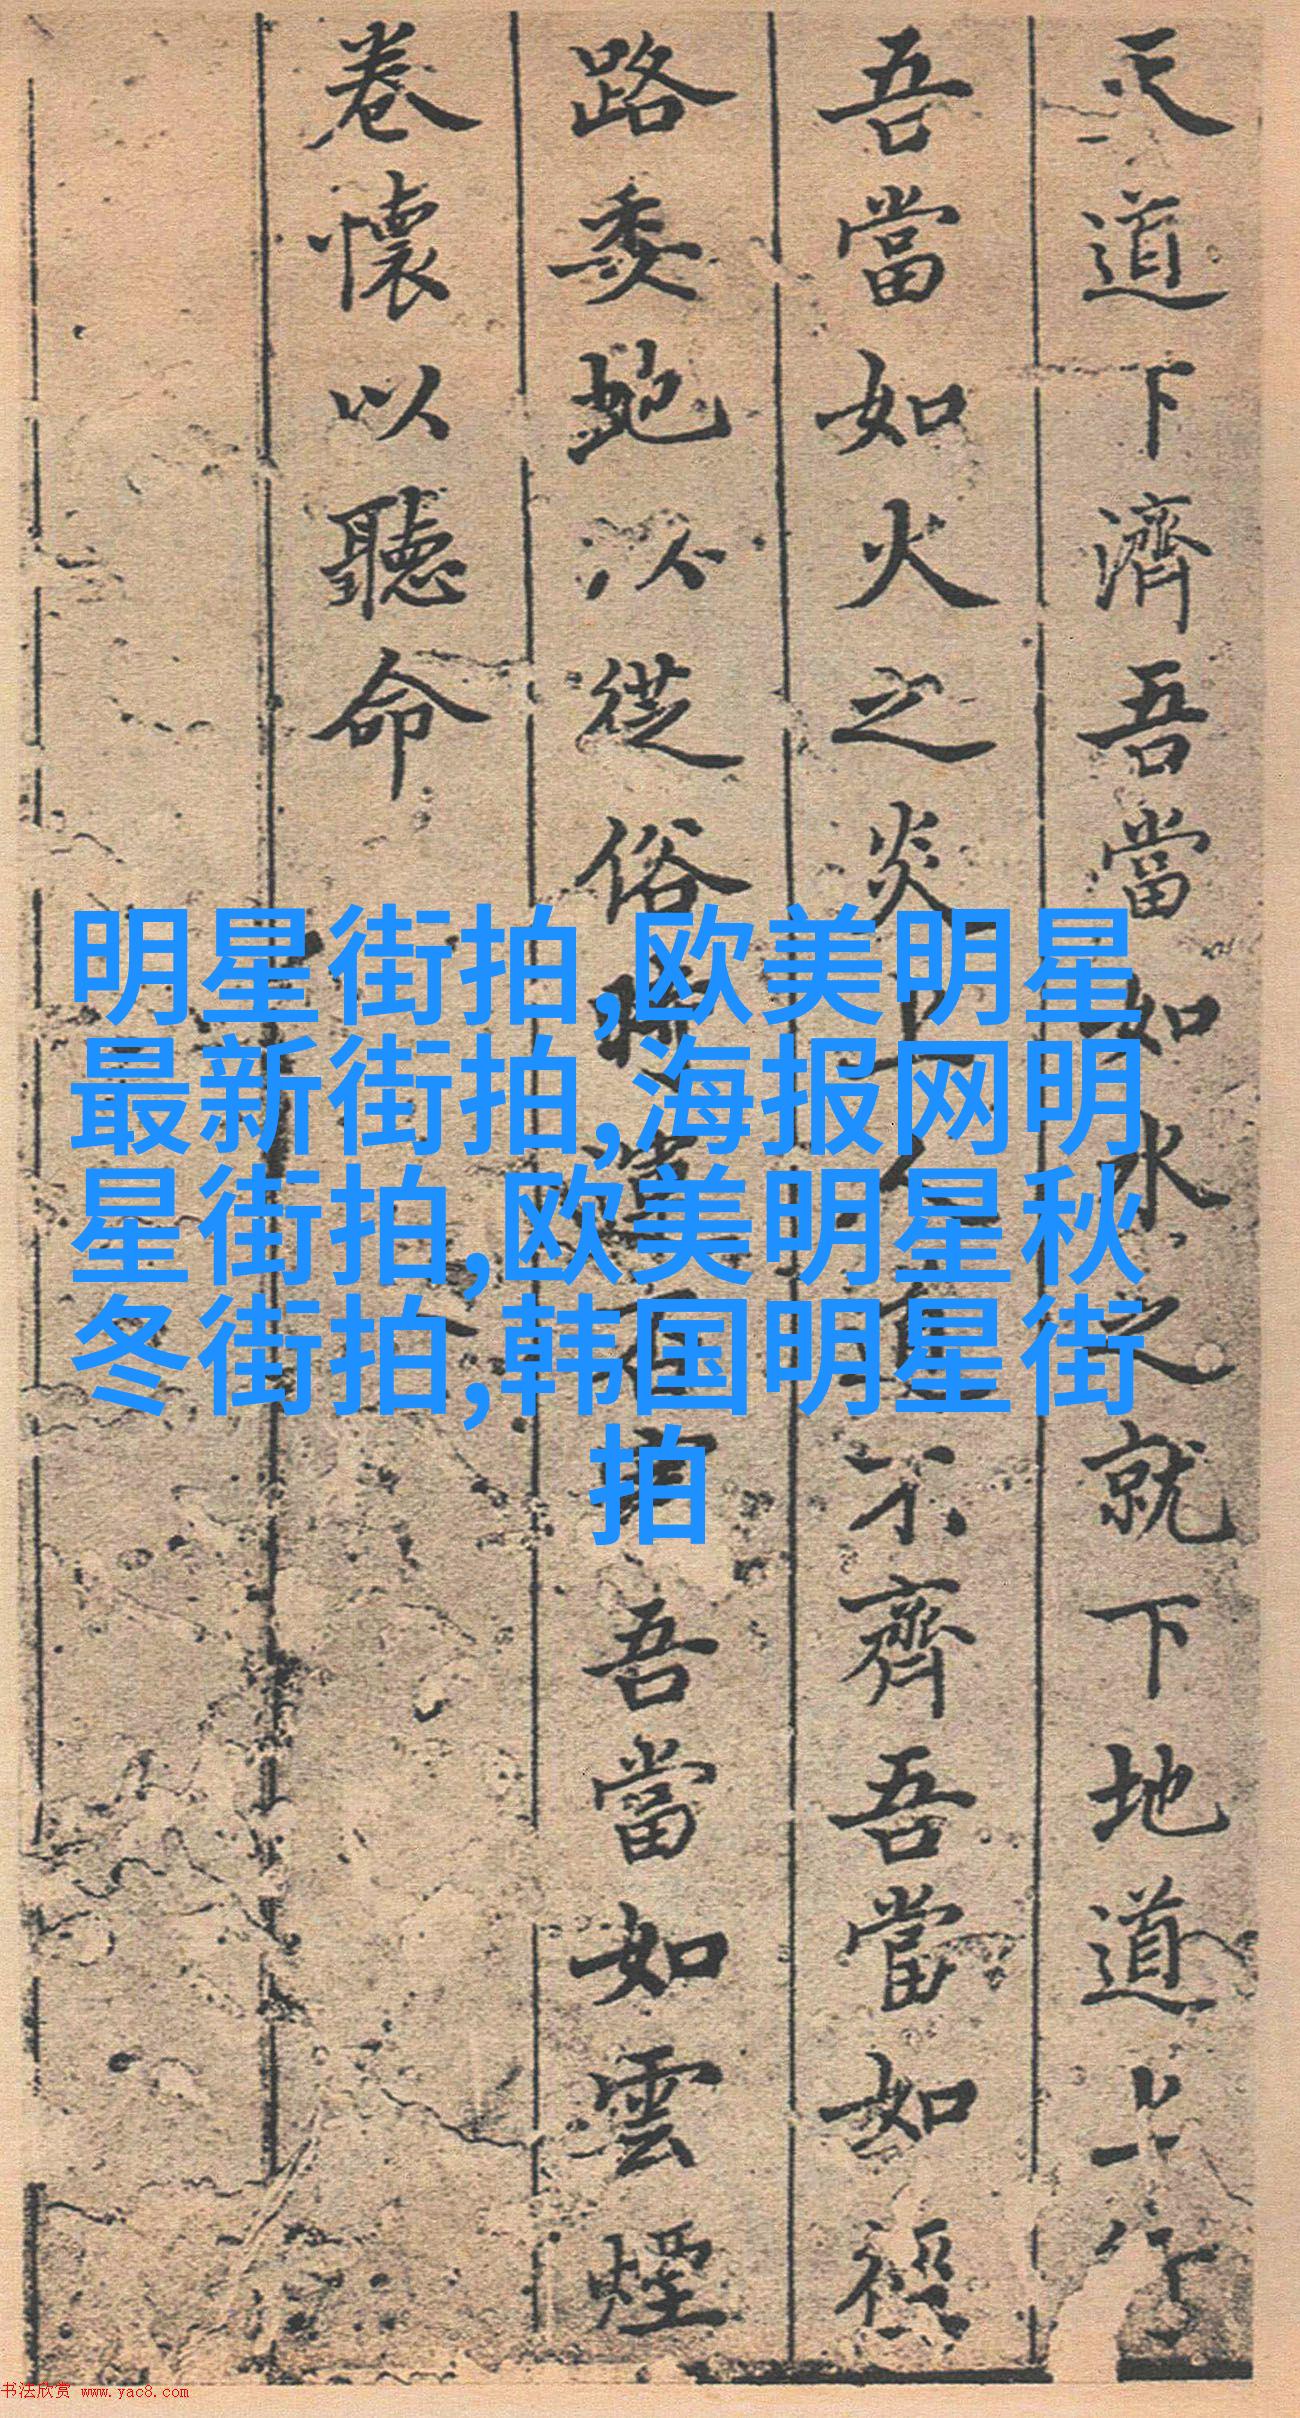 天道下濟吾當如水之就下地道上行
吾當如火之炎上人不齊吾當如
路委蛇以從俗吾當如雲煙
卷懷以聽命
明星街拍,欧美明星
最新街拍,海报网明
星街拍,欧美明星秋
冬街拍,韩国明星街
拍
书法欣赏 www.yac8.com